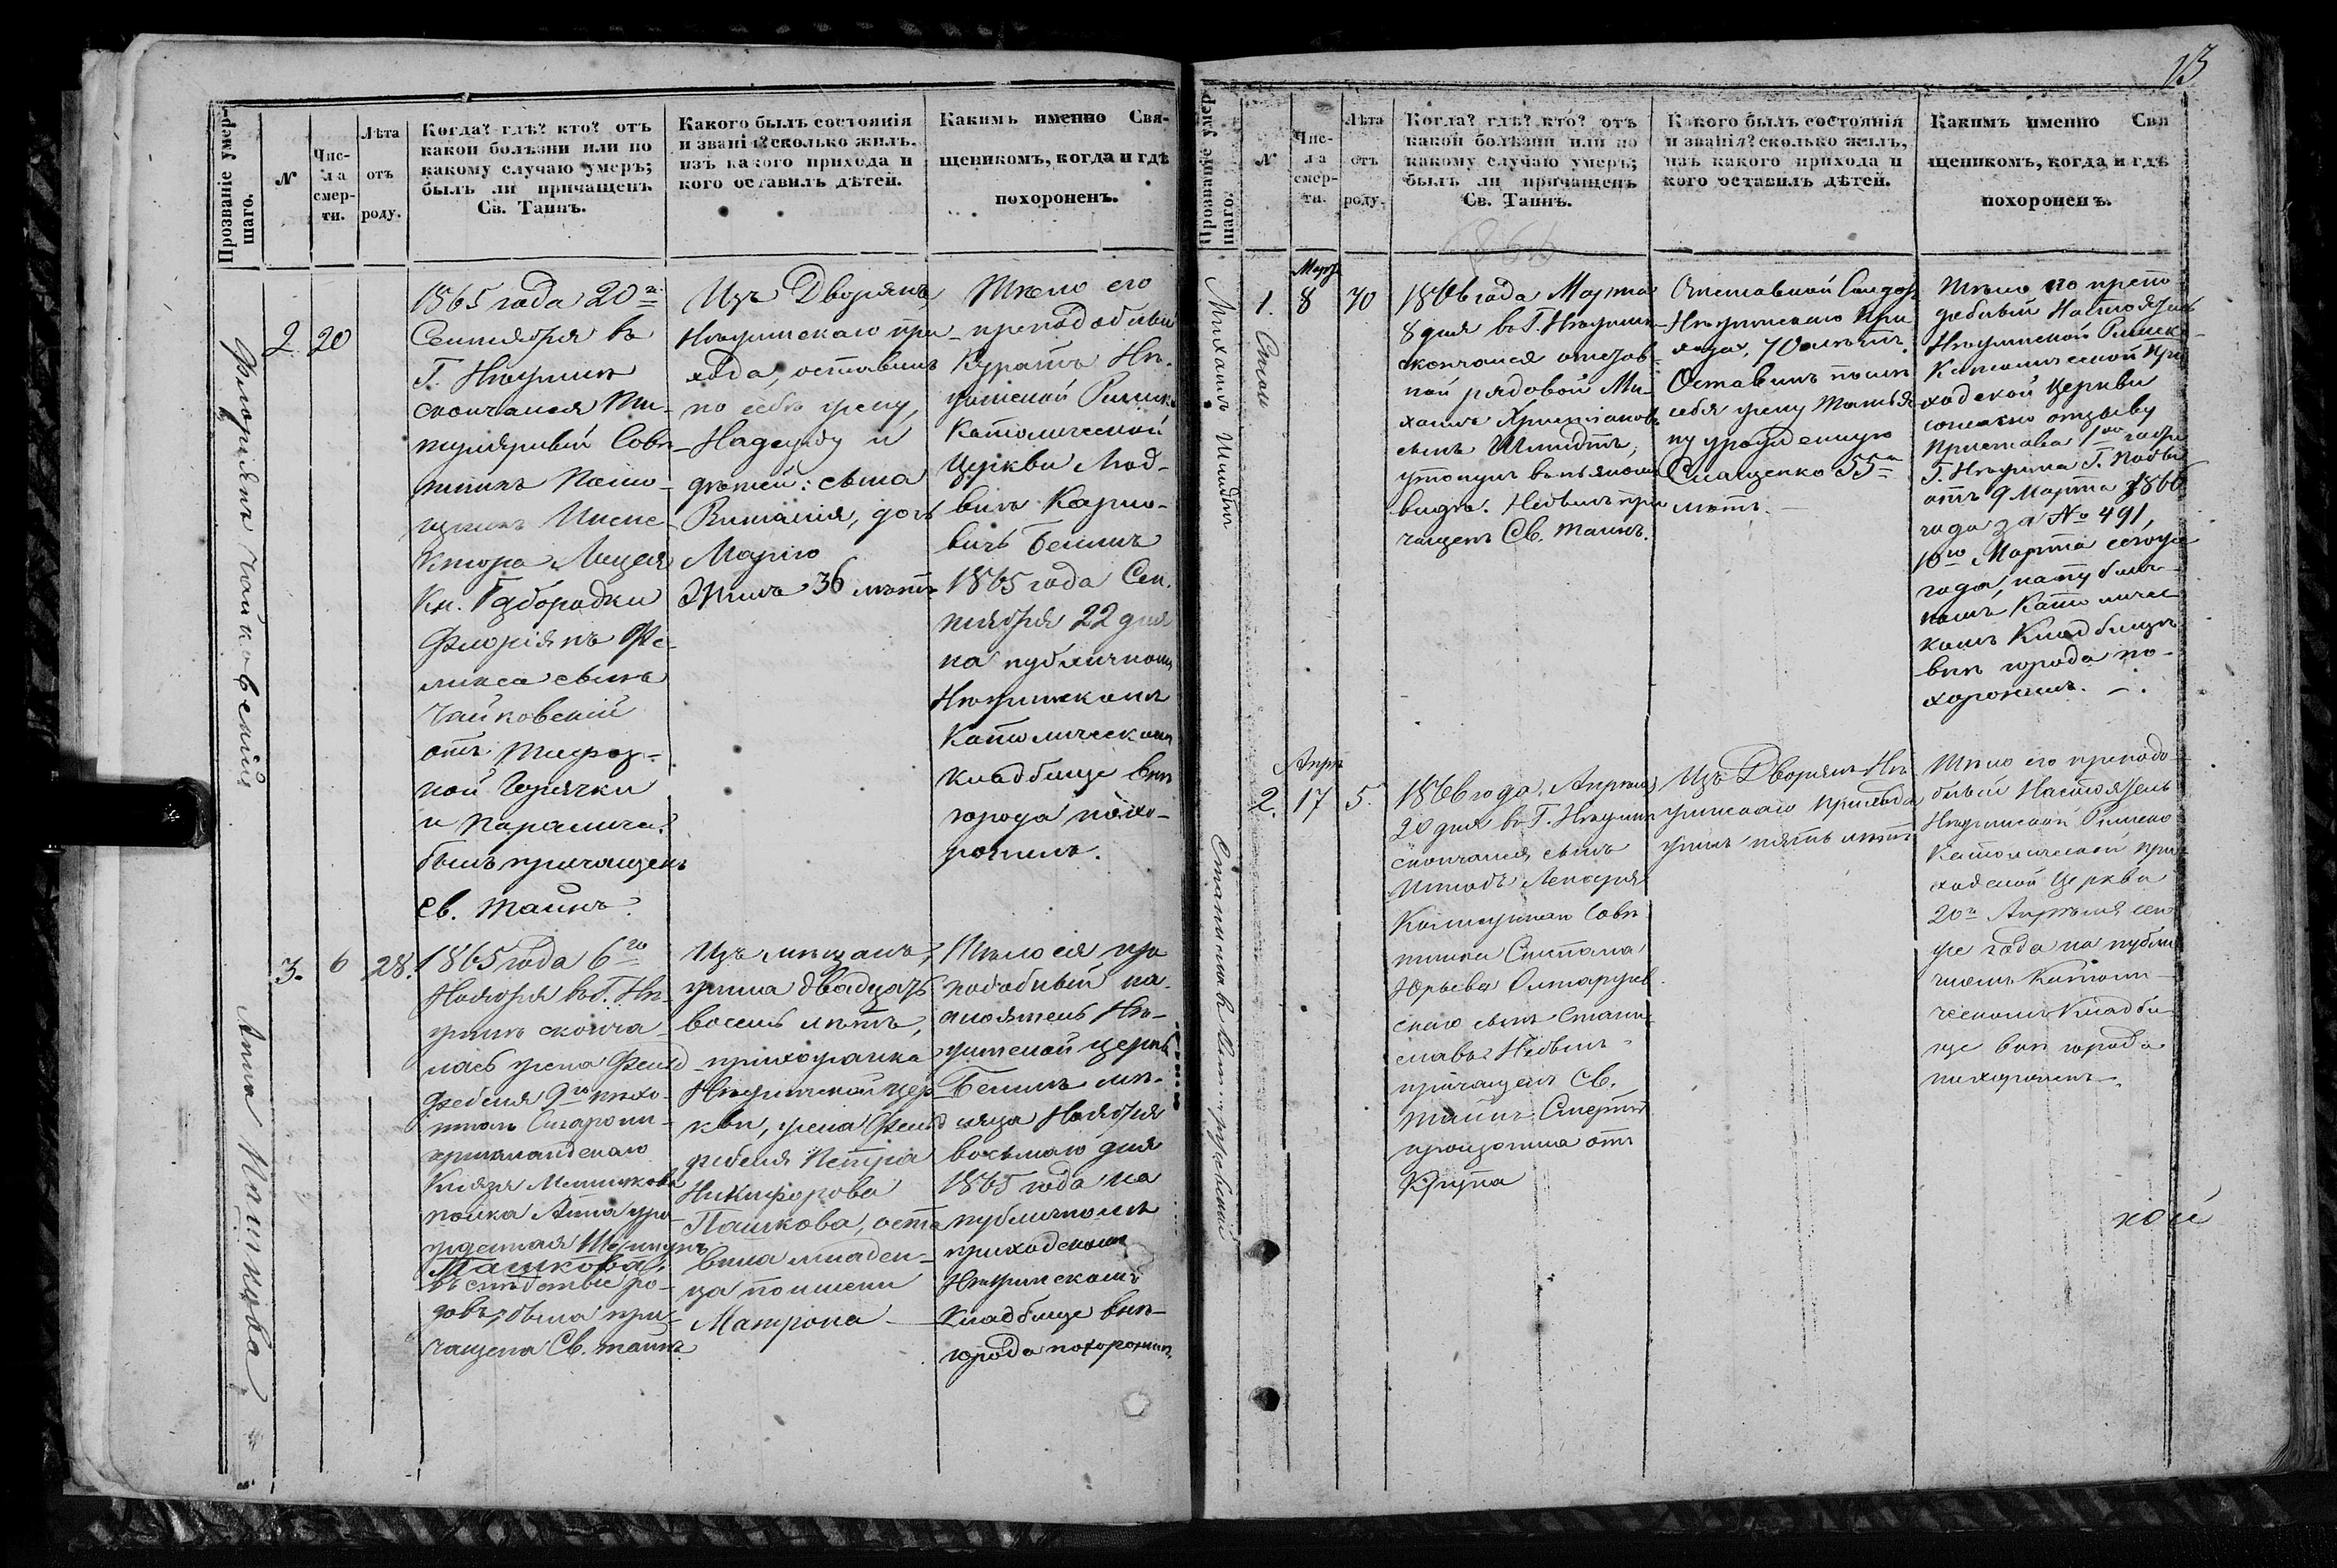 13
Прозваніе умер-
шаго.
№
Чис-
ла
смер-
ти.
Лѣта
отъ
роду.
Когда? гдѣ? кто? отъ
какой болѣзни или по
какому случаю умеръ;
былъ ли причащенъ
Св. Таинъ.
Какого былъ состоянія
и званія? сколько жилъ.
изъ какого прихода и
кого оставилъ дѣтей.
Какимъ именно Свя-
щеникомъ, когда и гдѣ
похороненъ.
Флоріянъ Чайковскій
2
20
1865 года 20го
Сентября въ
Г. Нѣжинѣ
скончался Ти-
тулярный Совѣ-
тникъ
Инспе-
ктора Лицея
Кн. Безбородки
Флоріянъ Фе-
ликса сынъ
Чайковскій
отъ Тифоз-
ной Горячки
и Паралича.
былъ причащенъ
Св. Таинъ.
Изъ Дворянъ,
Нѣжинскаго при-
хода, оставилъ
по себѣ жену
Надежду и
дѣтей: сына
Виталія, дочь
Марію
Жилъ 36 лѣтъ
Тѣло его
преподобный
Куратъ Нѣ-
жинской Римско
Католической
Церкви Люд-
викъ Карло-
вичъ Белинъ
1865 года Сен-
тября 22 дня
на публичномъ
Нѣжинскомъ
Католическомъ
кладбище внѣ
города похо-
ронилъ.
Анна Пашкова
3.
6
28.
1865 года 6го
Ноября въ Г. Нѣ-
жинѣ сконча-
лась жена Фельд-
фебеля 9го пѣхо-
тнаго Староин-
германландскаго
Князя Меншикова
полка Анна уро-
жденная
Пашкова,
въ слѣдствіе ро-
довъ, была при-
чащена Св. таинъ.
Изъ мѣщанъ,
жила двадцать
восемь лѣтъ,
прихожанка
Нѣжинской цер-
кви, жена Фельд-
фебеля Петра
Никифорова
Пашкова, оста-
вила младен-
ца по имени
Матрона
Тѣло ея пре-
подобный на-
стоятель Нѣ-
жинской церкви
Белинъ мѣ-
сяца Ноября
восьмаго дня
1865 года на
публичномъ
приходскомъ
Нѣжинскомъ
Кладбище внѣ
города похоронилъ.
Прозваніе умер-
шаго.
№
Чис-
ла
смер-
ти.
Лѣта
отъ
роду.
Когда? гдѣ? кто? отъ
какой болѣзни или по
какому случаю умеръ;
былъ ли причащенъ
Св. Таинъ.
Какого былъ состоянія
и званія? сколько жилъ,
изъ какого прихода и
кого оставилъ дѣтей.
Какимъ именно Свя
щеникомъ, когда и гдѣ
похороненъ.
1866
Михаилъ Шмидтъ
1.
Март
8
70
1866 года Марта
8 дня въ Г. Нѣжинѣ
скончался отстав-
ной рядовой Ми-
хаилъ Христіановъ
сынъ Шмидтъ,
утонулъ въ пьяномъ
видѣ. Небылъ при
чащенъ Св. таинъ.
Отставной Солдатъ
Нѣжинскаго При
хода, 70 лѣтъ.
Оставилъ послѣ
себя жену Татья
ну урожденную
Слащенко 55
лѣтъ.
Тѣло его препо
добный Настоятель
Нѣжинской Римско
Католической При
ходской Церкви
согласно отзыву
Пристава 1ой части
Г. Нѣжина
отъ 9 Марта 1866
года за № 491,
10го Марта сегоже
года, на публич-
номъ Католичес
комъ Кладбищѣ
внѣ города по-
хоронилъ.
Станиславъ
2.
Апрѣ
17
5.
1866 года, Апрѣля
20 дня въ Г. Нѣжинѣ
скончался сынъ
Лекаря
Коллежскаго Совѣ
тника
Юрьева
скаго сынъ Стани
славъ. Небылъ
причащенъ Св.
таинъ. Смерть
произошла отъ
Крупа
Изъ Дворянъ Нѣ
жинскаго Прихода
жилъ пять лѣтъ
Тѣло его преподо
бный Настоятель
Нѣжинской Римско
Католической при
ходской Церкви
20го Апрѣля сего
же года на публи
чномъ Католи-
ческомъ Кладби
ще внѣ города
похоронилъ.
ной